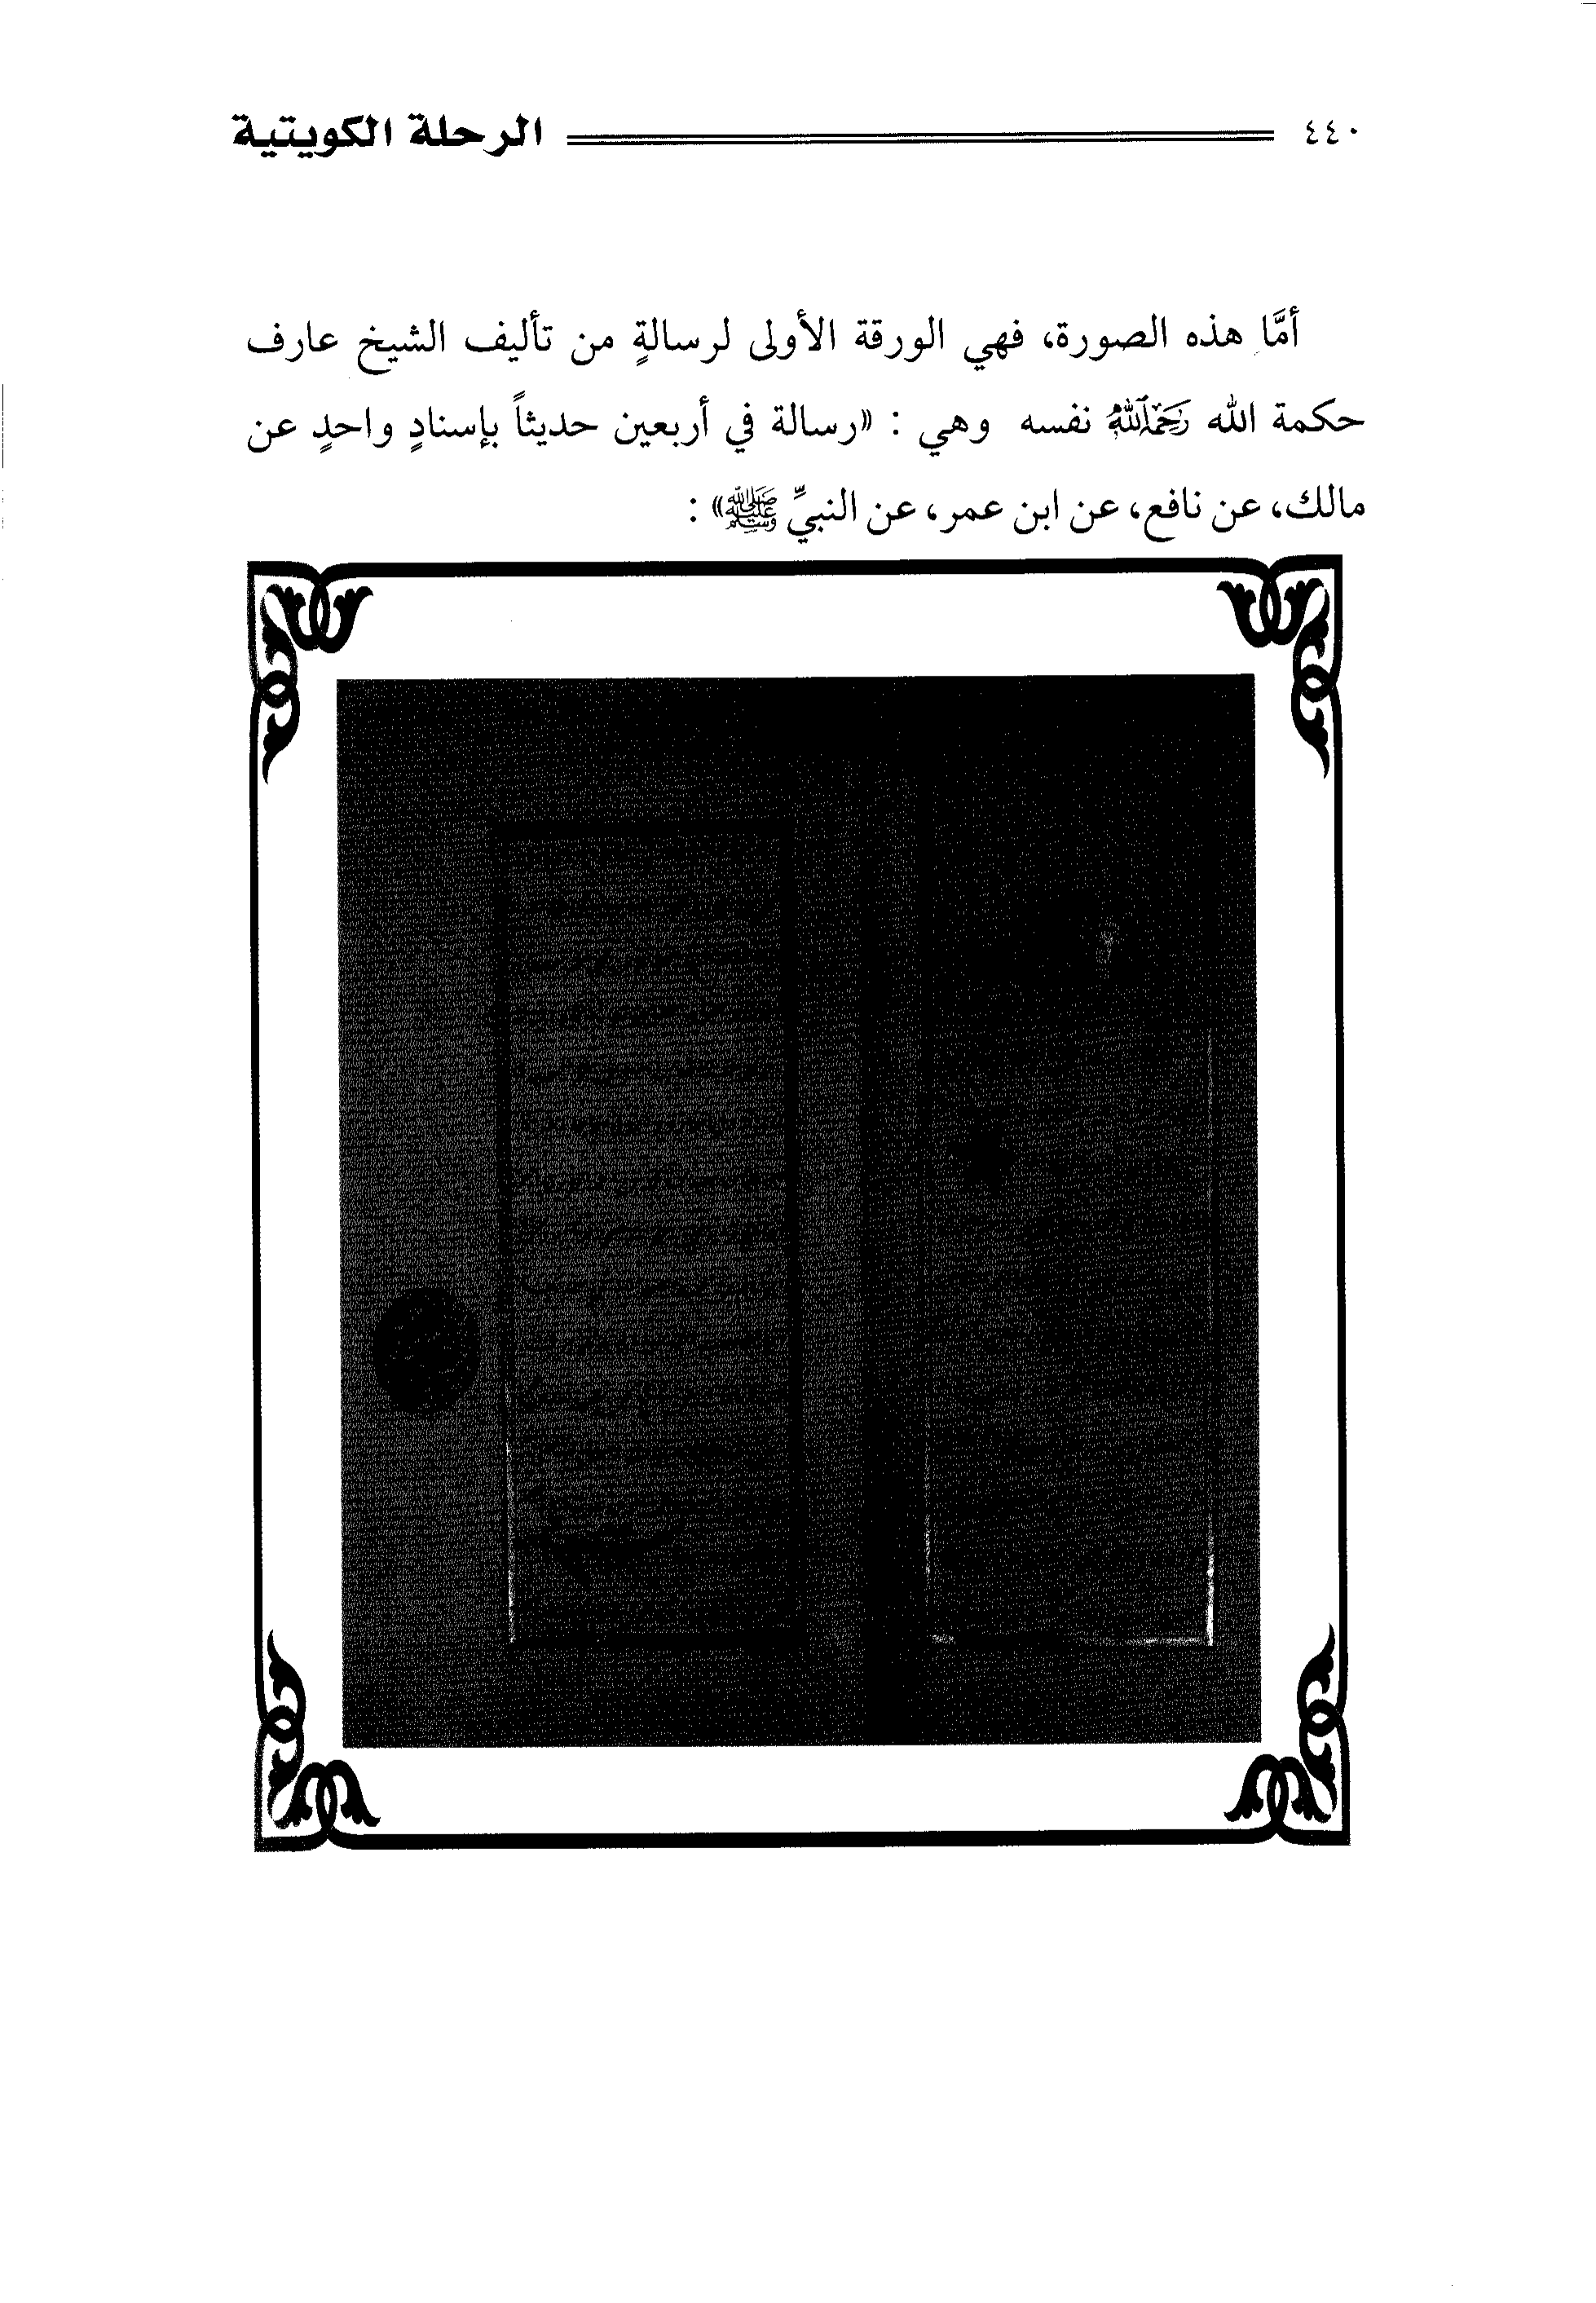 ٤٤٠ الرحلة الكويتية
أمَّا هذه الصورة، فهي الورقة الأولى لرسالةٍ من تأليف الشيخ عارف
حكمة الله رَحِمَهُ ٱللَّهُ نفسه وهي : «رسالة في أربعين حديثاً بإسنادٍ واحدٍ عن
مالك، عن نافع، عن ابن عمر، عن النبيِّ ﷺ» :